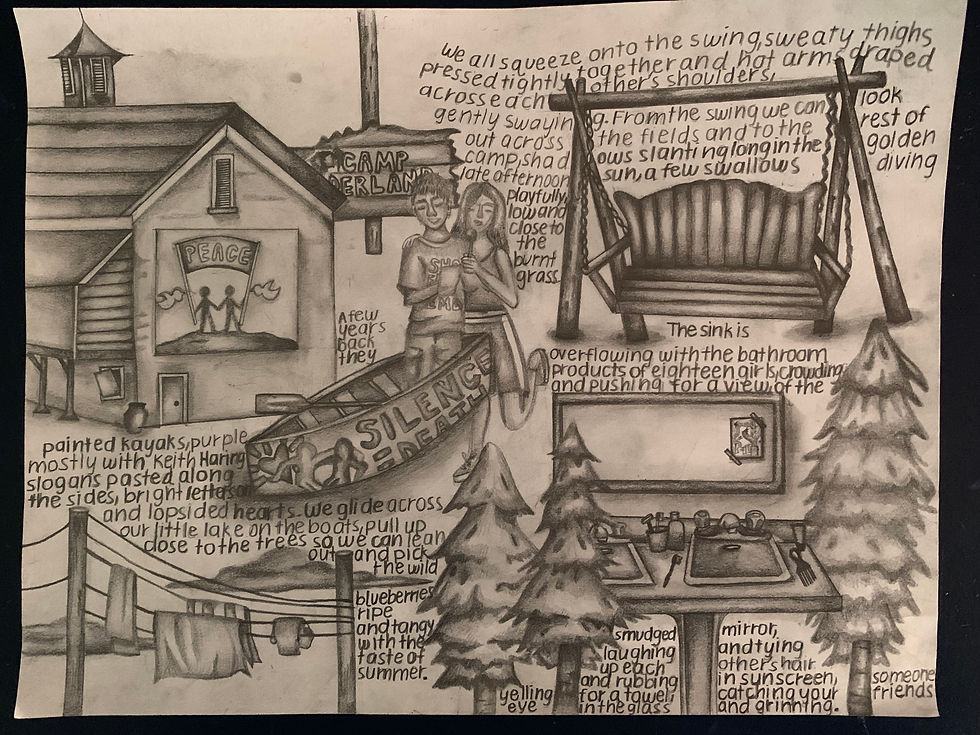 We all squeeze onto the swing, sweaty thighs
pressed tightly together and hot arms draped
across each other's shoulders,
gently swaying. From the swing we can look
out across the fields and to the rest of
camp, shadows slanting long in the golden
late afternoon sun, a few swallows diving
playfully,
low and
close to
the
burnt
grass.
CAMP
PEACE
A few
years
back
they
SILENCE
= DEATH
painted kayaks, purple
mostly with Keith Haring
slogans pasted along
the sides, bright letters
and lopsided hearts. We glide across
our little lake on the boats, pull up
close to the trees so we can lean
out and pick
the wild
blueberries
ripe
and tangy
with the
taste of
summer.
The sink is
overflowing with the bathroom
products of eighteen girls, crowding
and pushing for a view of the
smudged mirror,
laughing and tying
up each other's hair
and rubbing in sunscreen, someone
yelling for a towel, catching your friends
eye in the glass and grinning.